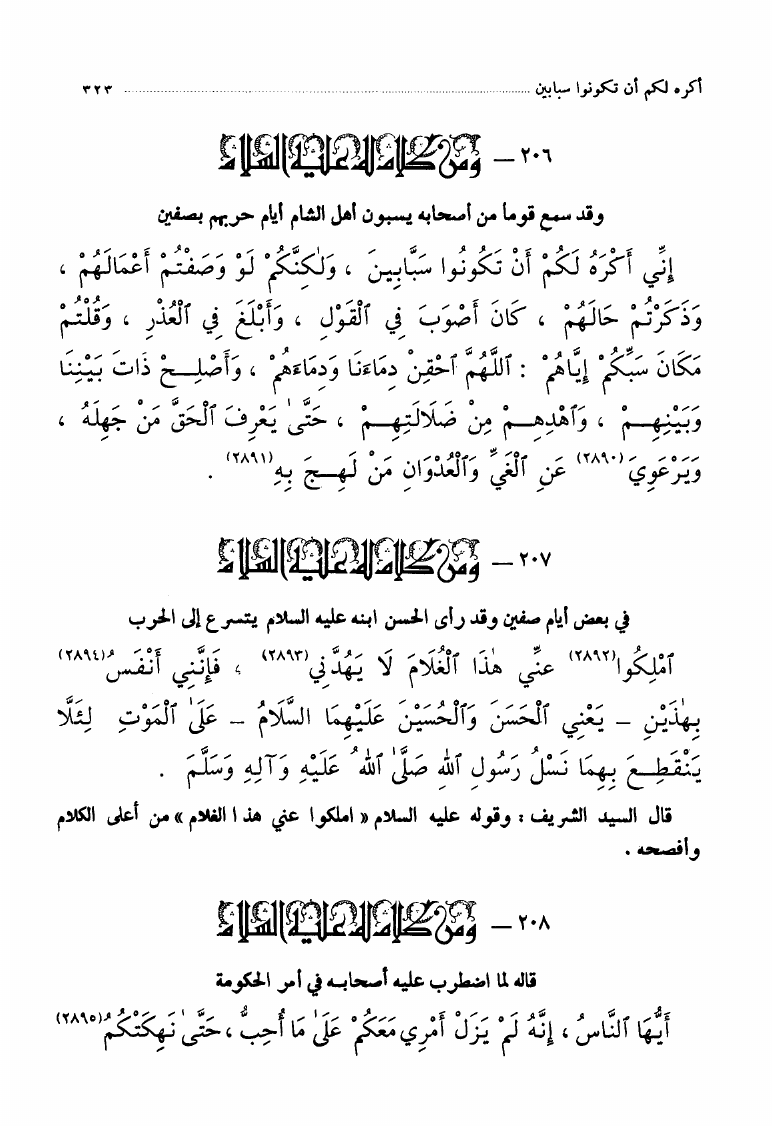 أكره لكم أن تكونوا سبابين ........................ ٣٢٣
٢٠٦ – ومن كلام له عليه السلام
وقد سمع قوماً من أصحابه يسبون أهل الشام أيام حربهم بصفين
إِنِّي أَكْرَهُ لَكُمْ أَنْ تَكُونُوا سَبَّابِينَ ، وَلٰكِنَّكُمْ لَوْ وَصَفْتُمْ أَعْمَالَهُمْ ،
وَذَكَرْتُمْ حَالَهُمْ ، كَانَ أَصْوَبَ فِي ٱلْقَوْلِ ، وَأَبْلَغَ فِي ٱلْعُذْرِ ، وَقُلْتُمْ
مَكَانَ سَبِّكُمْ إِيَّاهُمْ : ٱللَّهُمَّ ٱحْقِنْ دِمَاءَنَا وَدِمَاءَهُمْ ، وَأَصْلِحْ ذَاتَ بَيْنِنَا
وَبَيْنِهِمْ ، وَٱهْدِهِمْ مِنْ ضَلَالَتِهِمْ ، حَتَّىٰ يَعْرِفَ ٱلْحَقَّ مَنْ جَهِلَهُ ،
وَيَرْعَوِيَ(٢٨٩٠) عَنِ ٱلْغَيِّ وَٱلْعُدْوَانِ مَنْ لَهِجَ بِهِ(٢٨٩١) .
٢٠٧ – ومن كلام له عليه السلام
في بعض أيام صفين وقد رأى الحسن ابنه عليه السلام يتسرع إلى الحرب
ٱمْلِكُوا(٢٨٩٢) عَنِّي هٰذَا ٱلْغُلَامَ لَا يَهُدَّنِي(٢٨٩٣) ، فَإِنَّنِي أَنْفَسُ(٢٨٩٤)
بِهٰذَيْنِ – يَعْنِي ٱلْحَسَنَ وَٱلْحُسَيْنَ عَلَيْهِمَا السَّلَامُ – عَلَىٰ ٱلْمَوْتِ لِئَلَّا
يَنْقَطِعَ بِهِمَا نَسْلُ رَسُولِ ٱللهِ صَلَّىٰ ٱللهُ عَلَيْهِ وَآلِهِ وَسَلَّمَ .
قال السيد الشريف : وقوله عليه السلام « املكوا عني هذا الغلام » من أعلى الكلام
وأفصحه .
٢٠٨ – ومن كلام له عليه السلام
قاله لما اضطرب عليه أصحابه في أمر الحكومة
أَيُّهَا ٱلنَّاسُ ، إِنَّهُ لَمْ يَزَلْ أَمْرِي مَعَكُمْ عَلَىٰ مَا أُحِبُّ ، حَتَّىٰ نَهِكَتْكُمُ(٢٨٩٥)